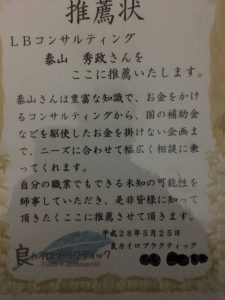 推薦状
LBコンサルティング
泰山 秀政さんを
ここに推薦いたします。
泰山さんは豊富な知識で、お金をかけ
るコンサルティングから、国の補助金
などを駆使したお金を掛けない企画ま
で、ニーズに合わせて幅広く相談に乗
ってくれます。
自分の職業でもできる未知の可能性を
師事していただき、是非皆様に知って
頂きたくここに推薦させて頂きます。
平成28年5月25日
良カイロプラクティック
良カイロプラクティック